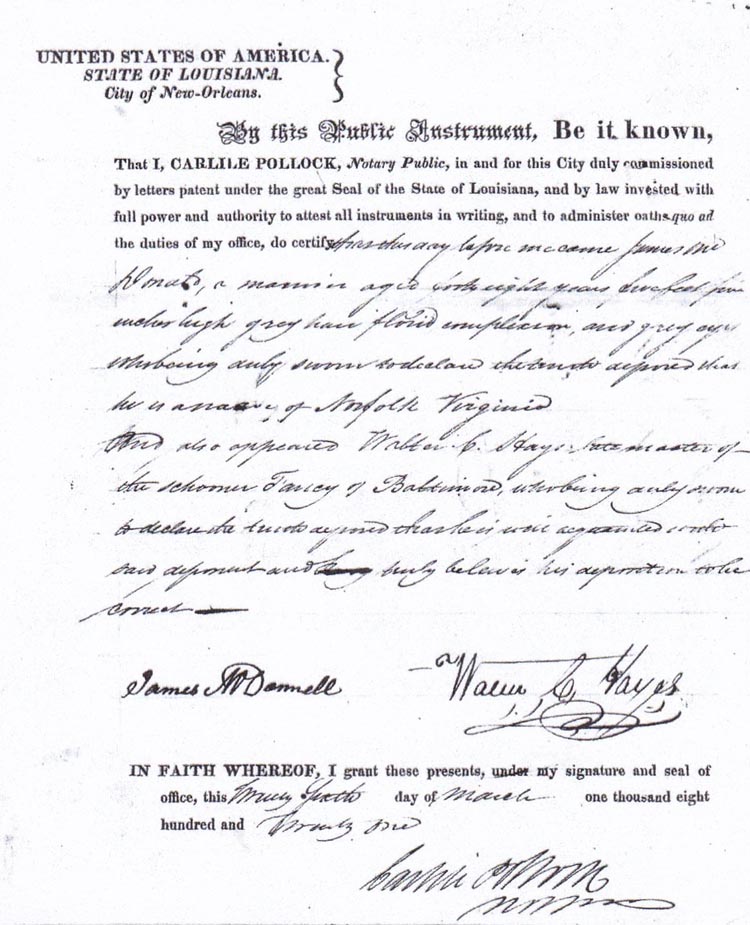 UNITED STATES OF AMERICA.
STATE OF LOUISIANA.
City of New-Orleans.
By this Public Instrument, Be it known,
That I, CARLILE POLLOCK, Notary Public, in and for this City duly commissioned
by letters patent under the great Seal of the State of Louisiana, and by law invested with
full power and authority to attest all instruments in writing, and to administer oaths quo ad
the duties of my office, do certify that this day before me came James Mc
Donald, a mariner aged eight years five feet
inches high grey hair florid complexion, and grey eyes
who being duly sworn to declare the truth deposed that
he is a native of Norfolk Virginia
And also appeared Walter C. Hayes late master of
the schooner Fancy of Baltimore, who being duly sworn
to declare the truth deposed that he is well acquainted with
said deponent and truly believes his deposition to be
correct
James McDonnell
Walter C Hayes
IN FAITH WHEREOF, I grant these presents, under my signature and seal of
office, this Twenty Sixth day of March one thousand eight
hundred and Twenty one
Carlile Pollock